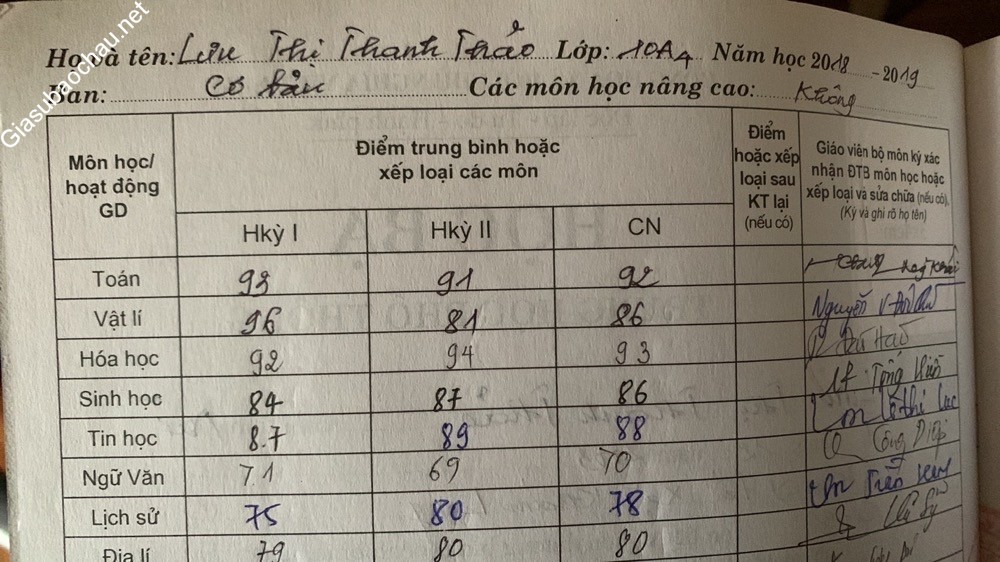 Giasubaochau.net
Họ và tên: Lưu Thị Thanh Thảo Lớp: 10A4 Năm học 2018 - 2019
Ban: Cơ bản Các môn học nâng cao: Không
Môn học/
hoạt động
GD
Điểm trung bình hoặc
xếp loại các môn
Hkỳ I Hkỳ II CN
Điểm
hoặc xếp
loại sau
KT lại
(nếu có)
Giáo viên bộ môn ký xác
nhận ĐTB môn học hoặc
xếp loại và sửa chữa (nếu có).
(Ký và ghi rõ họ tên)
Toán 93 91 92
Vật lí 96 81 86 Nguyễn
Hóa học 92 94 93
Sinh học 84 87 86
Tin học 8.7 89 88
Ngữ Văn 71 69 70
Lịch sử 75 80 78
Địa lí 79 80 80